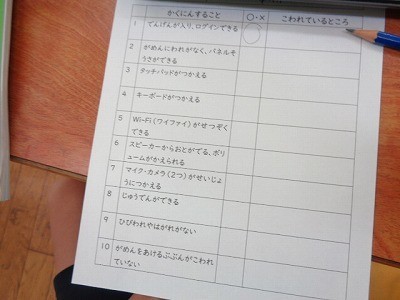 かくにんすること ○・× こわれているところ
1 でんげんが入り、ログインできる ○
2 がめんにわれがなく、パネルそ
うさができる
3 タッチパッドがつかえる
4 キーボードがつかえる
5 Wi-Fi(ワイファイ)がせつぞく
できる
6 スピーカーからおとがでる、ボリ
ュームがかえられる
7 マイク・カメラ(2つ)がせいじょ
うにつかえる
8 じゅうでんができる
9 ひびわれやはがれがない
10 がめんをあけるぶぶんがこわれ
ていない